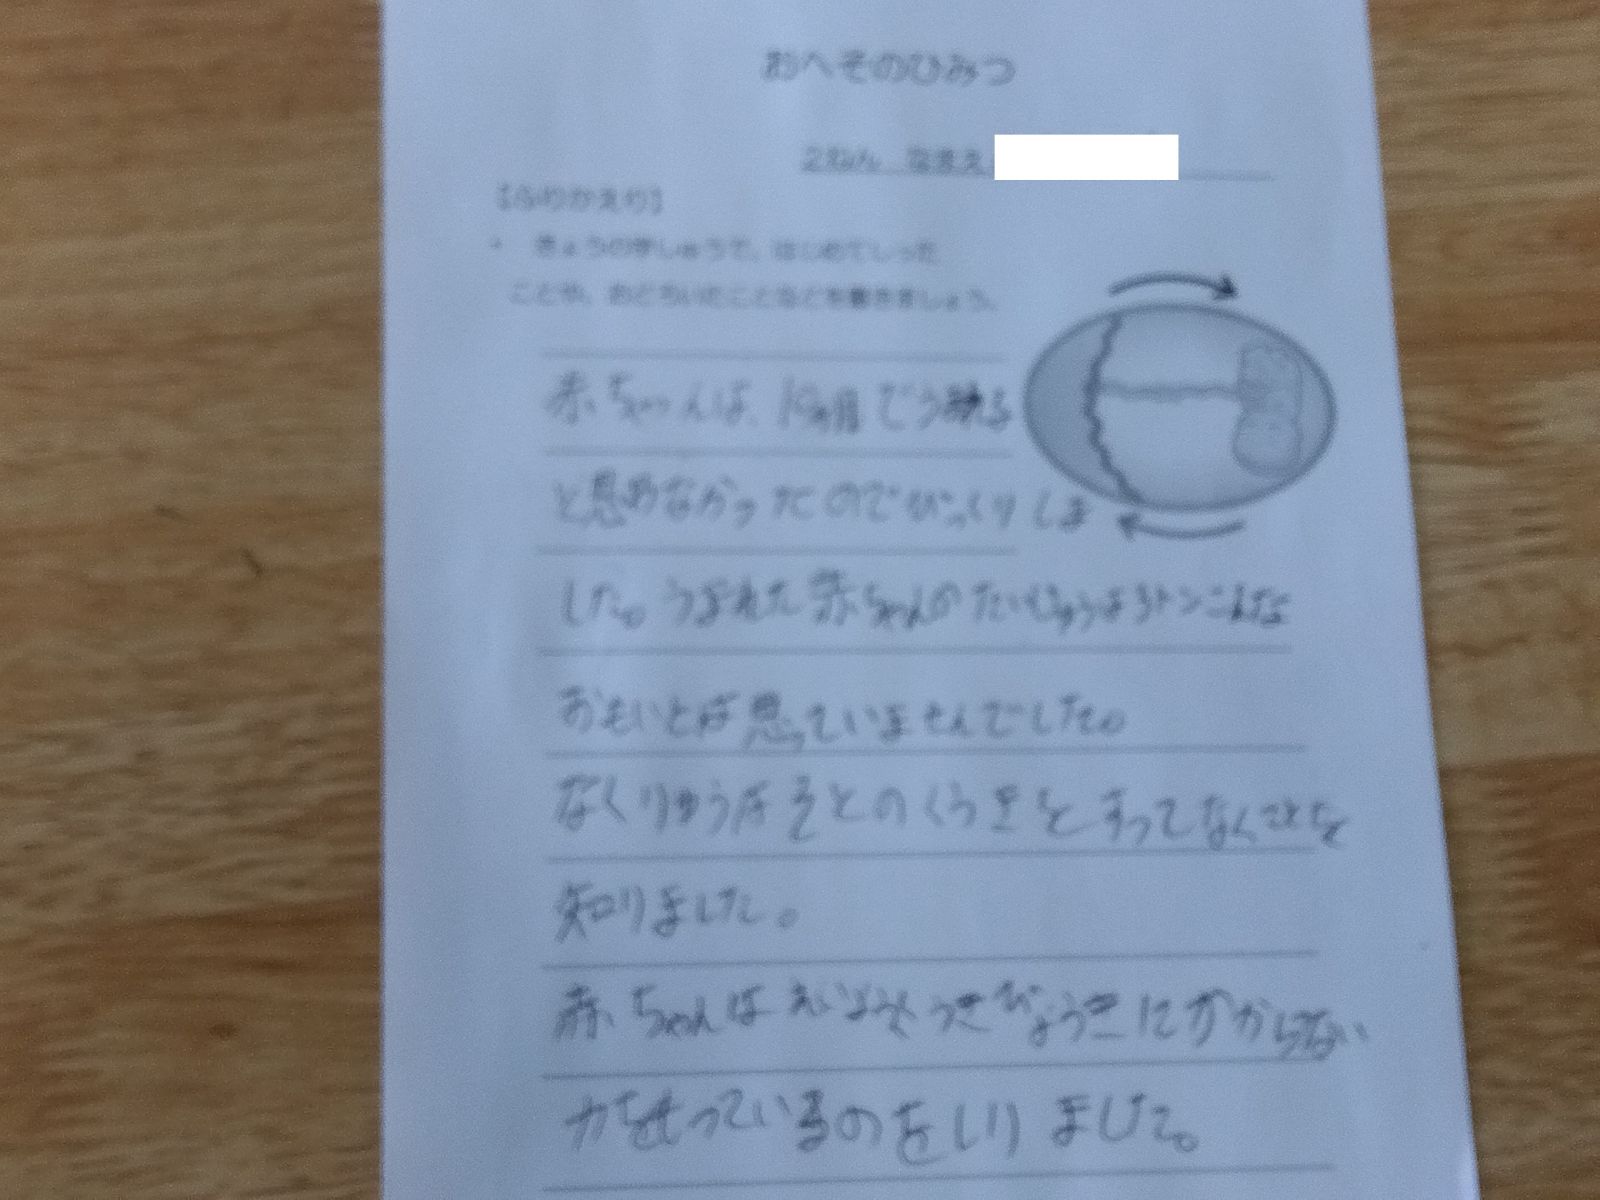 おへそのひみつ
2ねん なまえ
【ふりかえり】
・ きょうの学しゅうで、はじめてしった
ことや、おどろいたことなどを書きましょう。
赤ちゃんは、
と思わなかったのでびっくりしま
した。うまれた赤ちゃんのたいじゅうは
おもいとは思っていませんでした。
なくりゆうはそとのくうきをすってなくことを
知りました。
赤ちゃんは びょうきにかからない
力をもっているのをしりました。